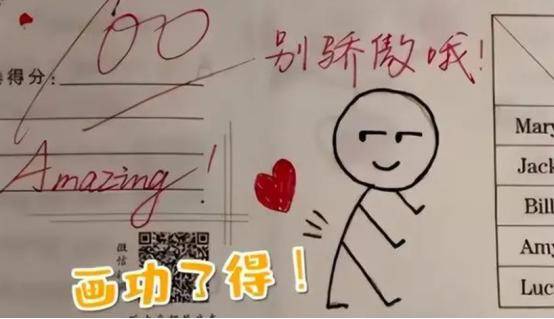 100
别骄傲哦!
得分:
Amazing!
Mary
Jack
Bill
Amy
Luc
微信
画功了得!